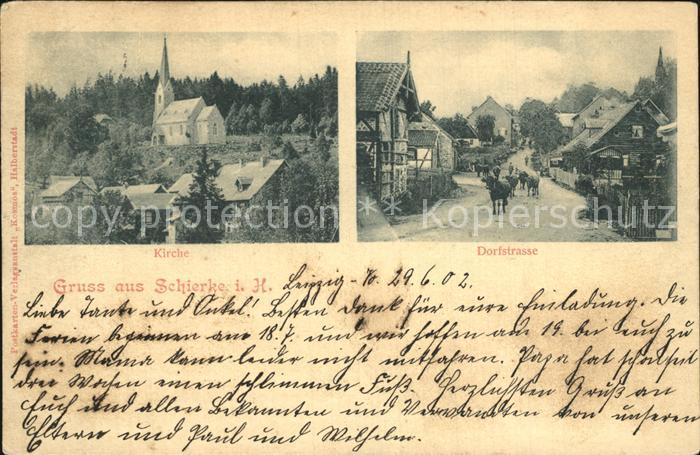 copyright @ Kopierschutz
Kirche
Dorfstrasse
Postkarten-Verlagsanstalt „Kosmos", Halberstadt
Gruss aus Schierke i. H.
Leipzig-R. 29.6.02.
Liebe Tante und Onkel! Besten Dank für eure Einladung. Die
Ferien beginnen am 18.7. und wir hoffen am 19. bei euch zu
sein. Mama kann leider nicht mitfahren. Papa hat schon seit
drei Wochen einen schlimmen Fuß. Herzlichsten Gruß an
Euch und allen Bekannten und Verwandten von unseren
Eltern und Paul und Wilhelm.